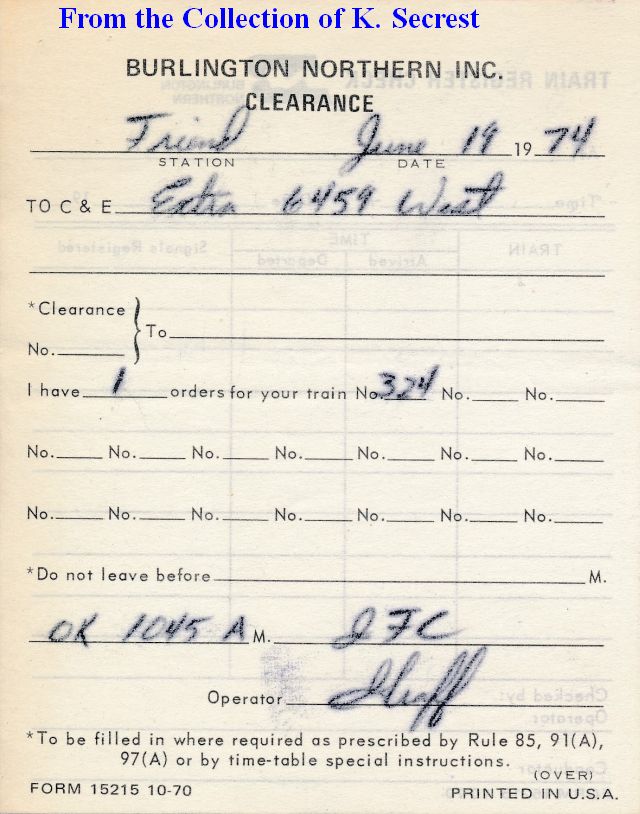 From the Collection of K. Secrest
BURLINGTON NORTHERN INC.
CLEARANCE
Friend June 19 19 74
STATION DATE
TO C & E Extra 6459 West
*Clearance
No. To
I have 1 orders for your train No. 324 No. No.
No. No. No. No. No. No. No.
No. No. No. No. No. No. No.
*Do not leave before M.
OK 1045 A M. JFC
Operator
*To be filled in where required as prescribed by Rule 85, 91(A),
97(A) or by time-table special instructions.
(OVER)
FORM 15215 10-70 PRINTED IN U.S.A.